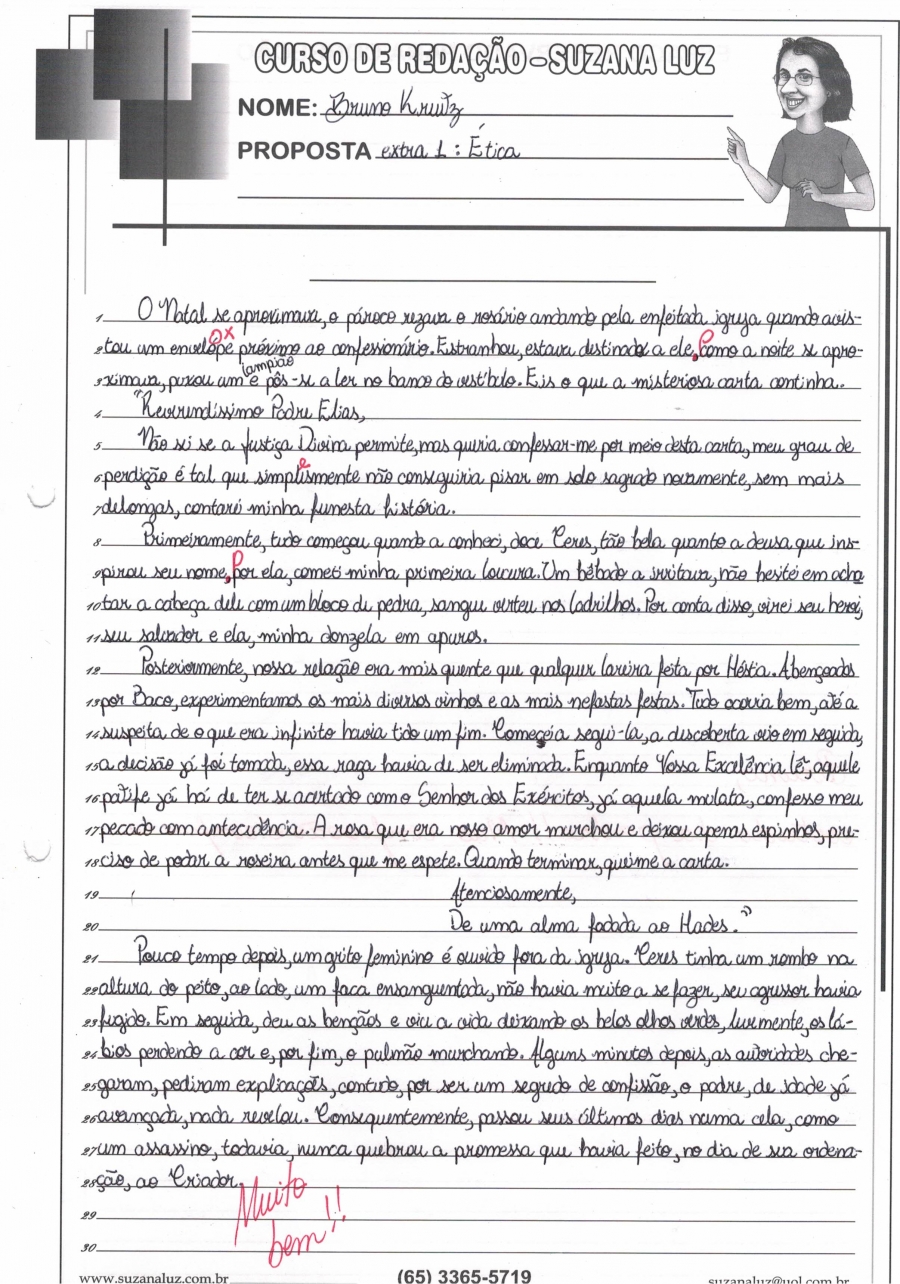 CURSO DE REDAÇÃO - SUZANA LUZ
NOME: Bruno Kruitz
PROPOSTA extra 1 : Ética
1 O Natal se aproximava, o pároco rezava o rosário andando pela enfeitada igreja quando avis-
2 tou um envelope x próximo ao confessionário. Estranhou, estava destinado a ele, Como a noite se apro-
lampião
3 ximava, puxou um e pôs-se a ler no banco do vestíbulo. Eis o que a misteriosa carta continha.
4 "Reverendíssimo Padre Elias,
5 Não sei se a Justiça Divina permite, mas queria confessar-me por meio desta carta, meu grau de
6 perdição é tal que simplismente e não conseguiria pisar em solo sagrado novamente, sem mais
7 delongas, contarei minha funesta história.
8 Primeiramente, tudo começou quando a conheci, doce Ceres, tão bela quanto a deusa que ins-
9 pirou seu nome, Por ela, cometi minha primeira loucura. Um bêbado a irritava, não hesitei em acha
10 tar a cabeça dele com um bloco de pedra, sangue verteu nos ladrilhos. Por conta disso, virei seu herói,
11 seu salvador e ela, minha donzela em apuros.
12 Posteriormente, nossa relação era mais quente que qualquer lareira feita por Héstia. Abençoados
13 por Baco, experimentamos os mais diversos vinhos e as mais nefastas festas. Tudo ocorria bem, até a
14 suspeita de o que era infinito havia tido um fim. Comecei a segui-la, a descoberta veio em seguida,
15 a decisão já foi tomada, essa raça havia de ser eliminada. Enquanto Vossa Excelência lê, aquele
16 patife já há de ter se acertado com o Senhor dos Exércitos, já aquela mulata, confesso meu
17 pecado com antecedência. A rosa que era nosso amor murchou e deixou apenas espinhos, pre-
18 ciso de podar a roseira antes que me espete. Quando terminar, queime a carta.
19 Atenciosamente,
20 De uma alma fadada ao Hades."
21 Pouco tempo depois, um grito feminino é ouvido fora da igreja. Ceres tinha um rombo na
22 altura do peito, ao lado, um faca ensanguentada, não havia muito a se fazer, seu agressor havia
23 fugido. Em seguida, deu as bençãos e viu a vida deixando os belos olhos verdes, levemente, os lá-
24 bios perdendo a cor e, por fim, o pulmão murchando. Alguns minutos depois, as autoridades che-
25 garam, pediram explicações, contudo, por ser um segredo de confissão, o padre, de idade já
26 avançada, nada revelou. Consequentemente, passou seus últimos dias numa cela, como
27 um assassino, todavia, nunca quebrou a promessa que havia feito, no dia de sua ordena-
28 ção, ao Criador.
Muito
bem!!
29
30
www.suzanaluz.com.br (65) 3365-5719 suzanaluz@uol.com.br